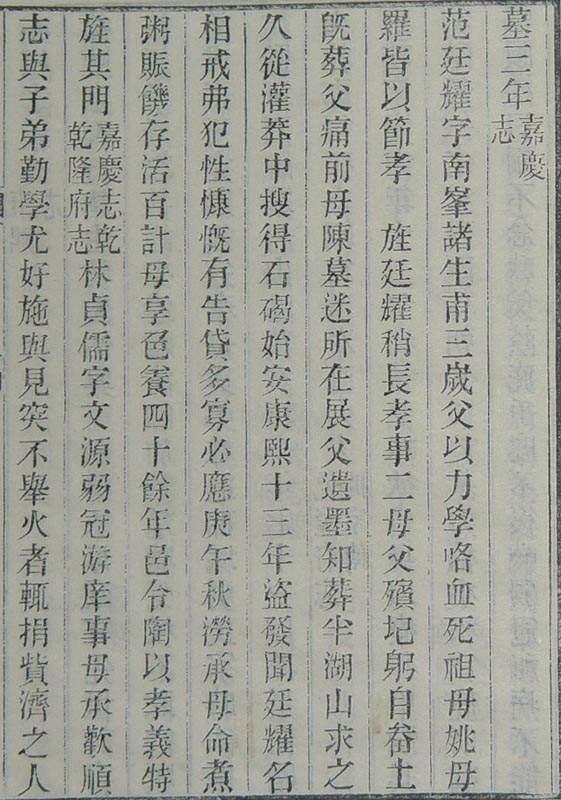 墓三年嘉慶志
范廷耀字南峯諸生甫三歲父以力學咯血死祖母姚母
羅皆以節孝 旌廷耀稍長孝事二母父殯圮躬自畚土
旣葬父痛前母陳墓迷所在展父遺墨知葬半湖山求之
久從灌莽中搜得石碣始安康熙十三年盜發聞廷耀名
相戒弗犯性慷慨有告貸多寡必應庚午秋澇承母命煮
粥賑饑存活百計母享色養四十餘年邑令陶以孝義特
旌其門嘉慶志乾乾隆府志林貞儒字文源弱冠游庠事母承歡順
志與子弟勤學尤好施與見突不舉火者輒捐貲濟之人